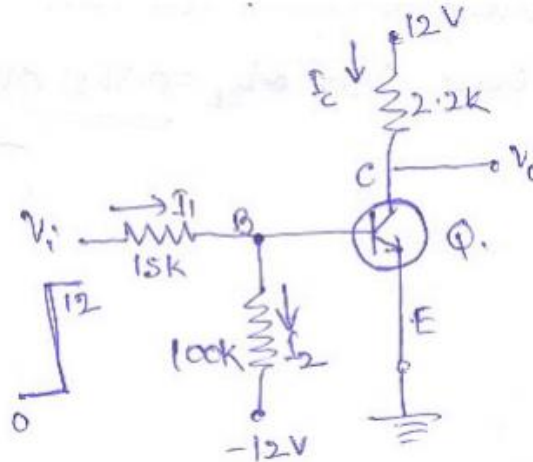 12V
Ic
2.2K
C
Vo
Vi
I1
B
Q.
15K
12
E
100K
I2
0
-12V